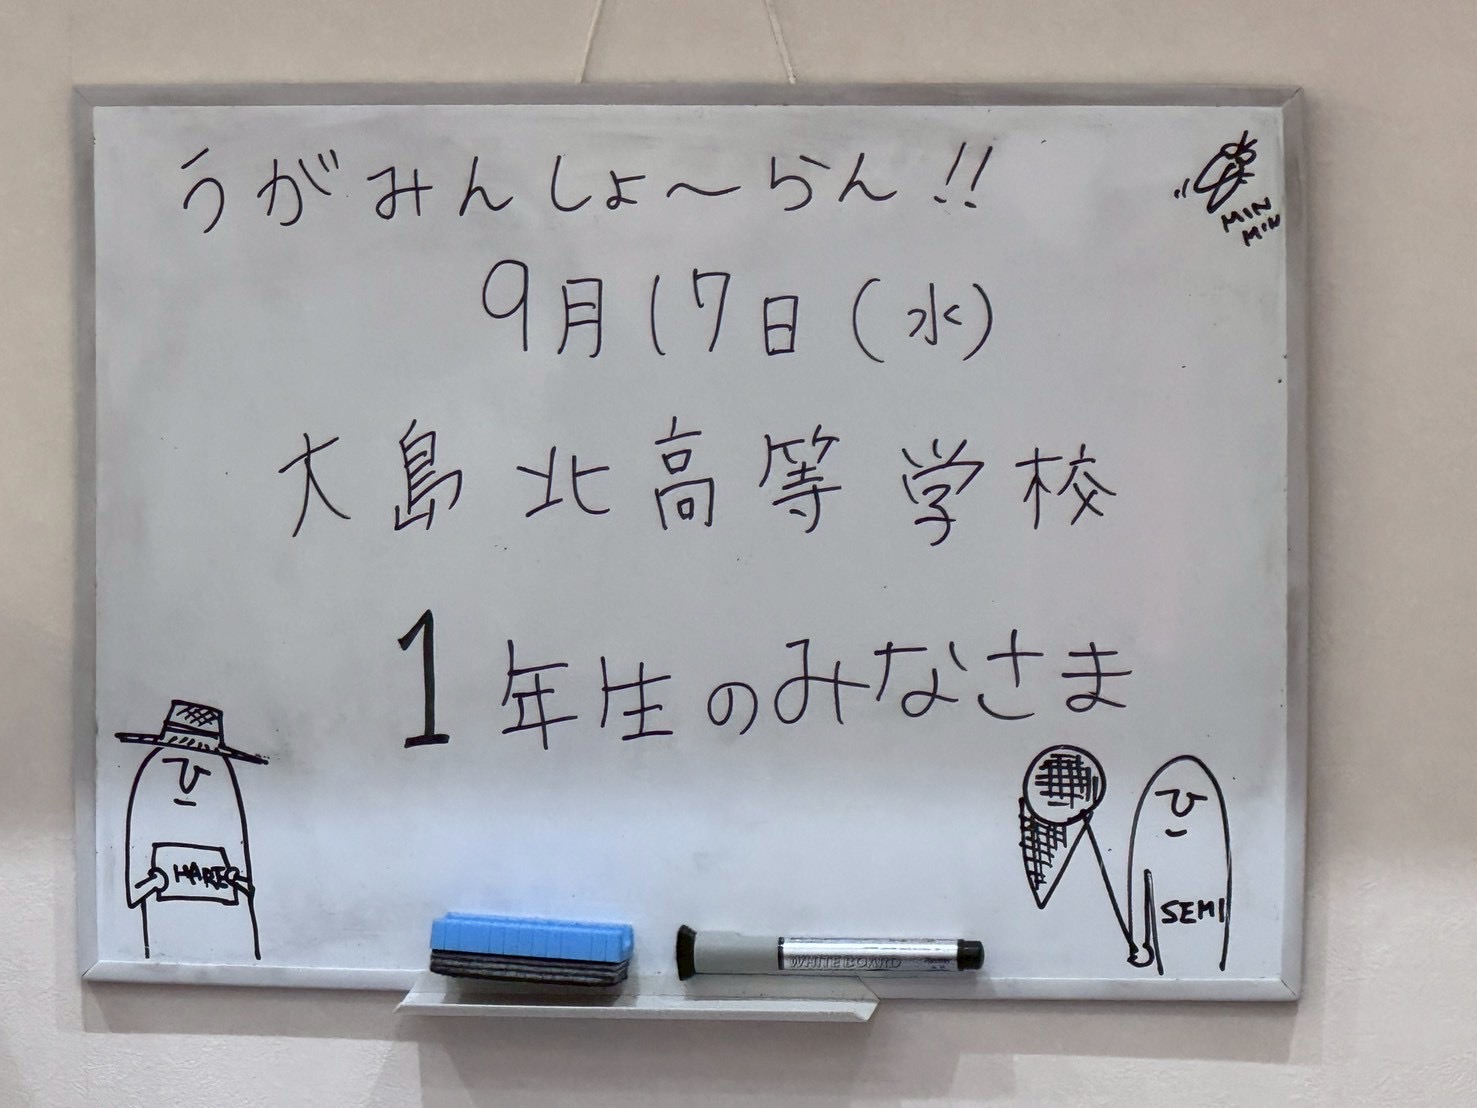 うがみんしょ〜らん!!
MIN
MIN
9月17日(水)
大島北高等学校
1年生のみなさま
HARE
SEMI
WHITEBOARD